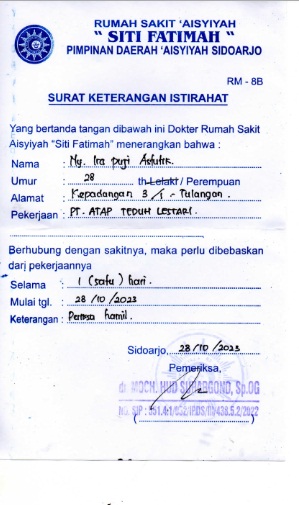 RUMAH SAKIT 'AISYIYAH
" SITI FATIMAH "
PIMPINAN DAERAH 'AISYIYAH SIDOARJO
RM - 8B
SURAT KETERANGAN ISTIRAHAT
Yang bertanda tangan dibawah ini Dokter Rumah Sakit
Aisyiyah "Siti Fatimah" menerangkan bahwa :
Nama : Ny. Ira puji Astutik.
Umur : 28 th Lelaki / Perempuan
Alamat : Kepadangan 3/1 - Tulangan
Pekerjaan : PT. ATAP TEDUH LESTARI.
Berhubung dengan sakitnya, maka perlu dibebaskan
dari pekerjaannya
Selama : 1 (satu) hari.
Mulai tgl. : 28 / 10 / 2023
Keterangan : Periksa hamil.
Sidoarjo, 28 / 10 / 2023
Pemeriksa,
dr. MOCH. HUD SURARGONO, Sp.OG